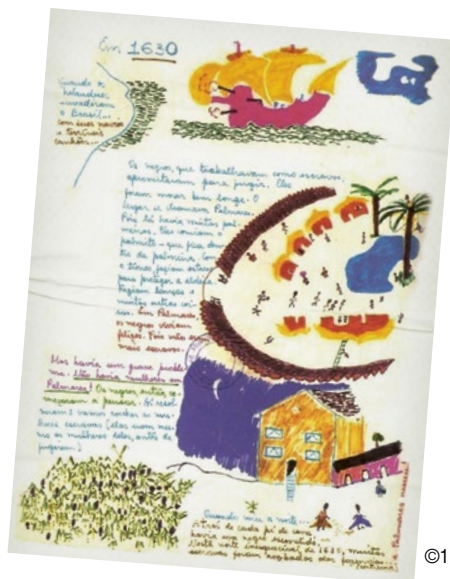 Em 1630
Quando os
holandeses
invadiram
o Brasil...
com seus navios
e terríveis
canhões...
Os negros, que trabalhavam como escravos,
aproveitaram para fugir. Eles
foram morar bem longe. O
lugar se chamava Palmares.
Pois lá havia muitas pal-
meiras. Eles comiam o
palmito - que fica den-
tro da palmeira. Com
o tronco faziam estacas
para proteger a aldeia
faziam lanças e
muitas outras coi-
sas. Em Palmares
os negros viviam
felizes. Pois não eram
mais escravos.
Mas havia um grave proble-
ma. Não havia mulheres em
Palmares! Os negros, então, co-
meçaram a pensar. Aí resol-
veram: vamos roubar as mu-
lheres escravas (elas eram mes-
mo as mulheres deles, antes de
fugirem)
Quando caiu a noite...
Atrás de cada pé de cana
havia um negro escondido...
Nesta noite inesquecível de 1630, muitas
escravas foram roubadas das fazendas
©1